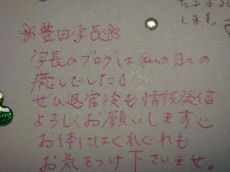 たよ
します。
豊田学長
学長のブログは私の日々の
癒しでした♪
ぜひ退官後も情報発信
よろしくお願いします
お体にはくれぐれも
お気をつけ下さいませ。